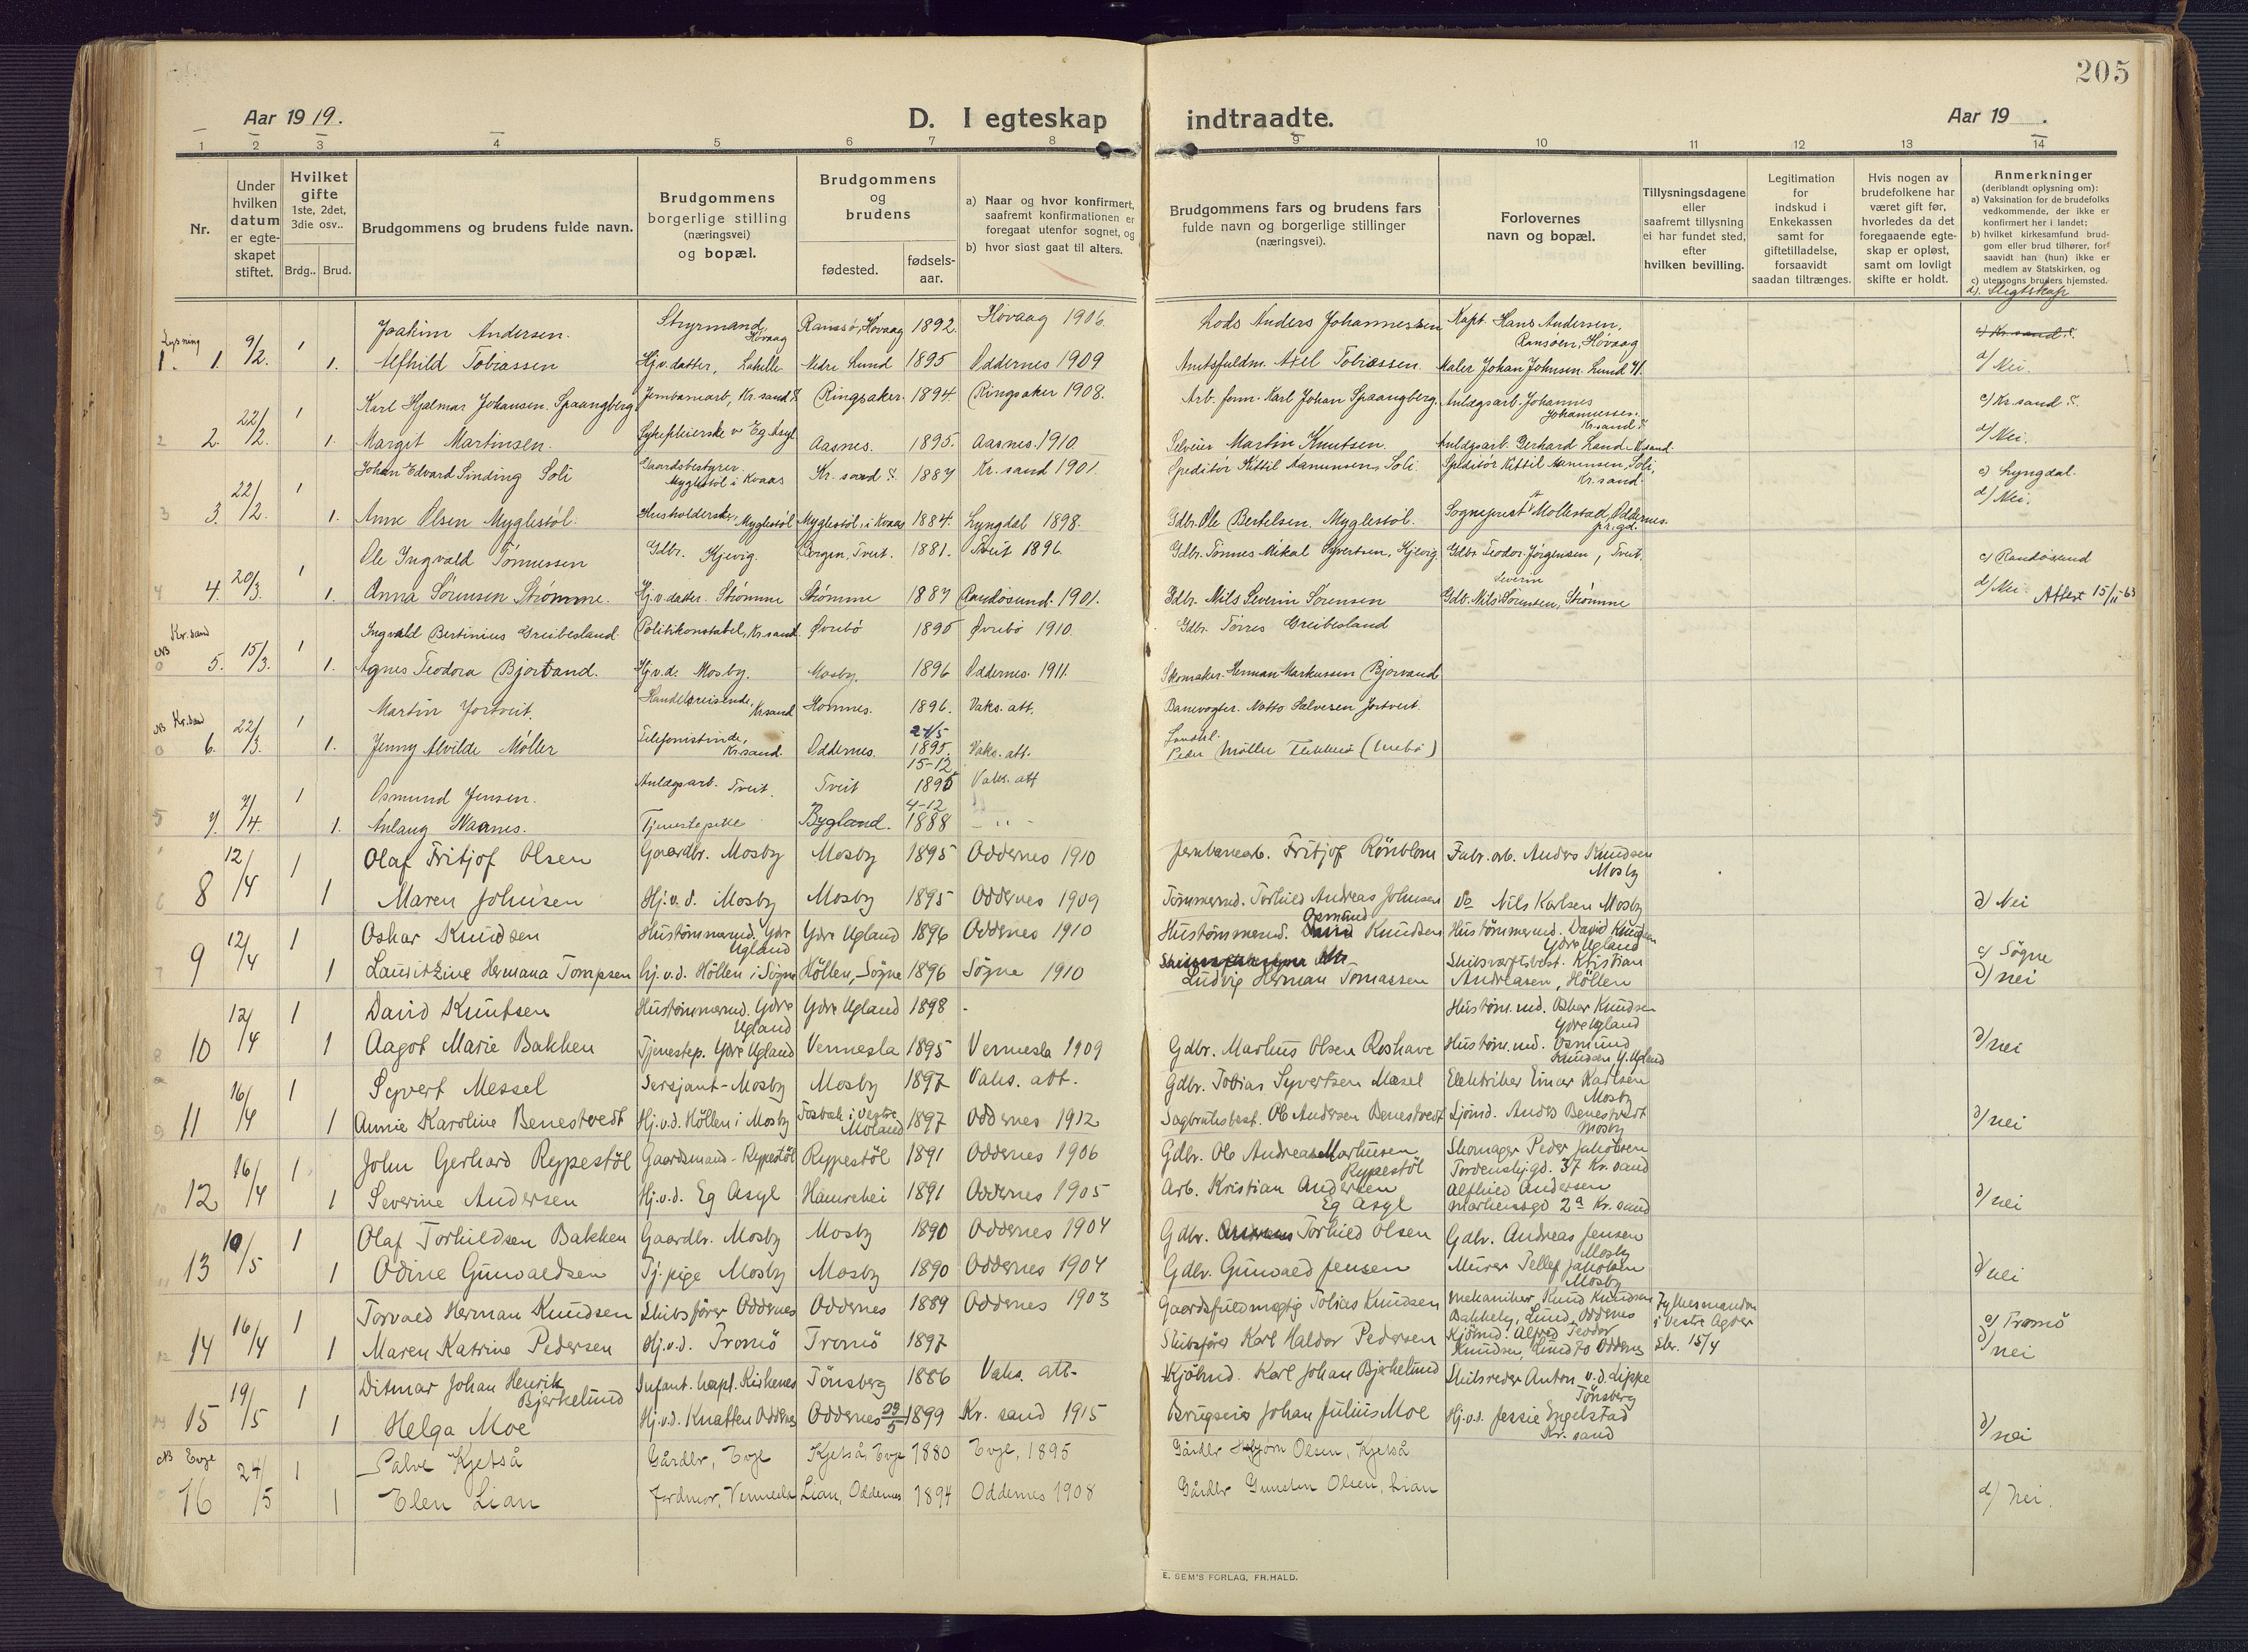 205
Aar 1919.
D. I egteskap indtraadte.
Aar 19 .
1 2 3 4 5 6 7 8 9 10 11 12 13 14
Nr.
Under hvilken datum er egteskapet stiftet.
Hvilket gifte 1ste, 2det, 3die osv..
Brdg.. Brud.
Brudgommens og brudens fulde navn.
Brudgommens borgerlige stilling (næringsvei) og bopæl.
Brudgommens og brudens
fødested.
fødsels-aar.
a) Naar og hvor konfirmert, saafremt konfirmationen er foregaat utenfor sognet, og
b) hvor sidst gaat til alters.
Brudgommens fars og brudens fars fulde navn og borgerlige stillinger (næringsvei).
Forlovernes navn og bopæl.
Tillysningsdagene eller saafremt tillysning ei har fundet sted, efter hvilken bevilling.
Legitimation for indskud i Enkekassen samt for giftetilladelse, forsaavidt saadan tiltrænges.
Hvis nogen av brudefolkene har været gift før, hvorledes da det foregaaende egteskap er opløst, samt om lovligt skifte er holdt.
Anmerkninger (deriblandt oplysning om):
a) Vaksination for de brudefolks vedkommende, der ikke er konfirmert her i landet;
b) hvilket kirkesamfund brudgom eller brud tilhører, forsaavidt han (hun) ikke er medlem av Statskirken, og
c) utensogns bruders hjemsted.
d). Slegtskap
Lysning
1. 1. 9/2. 1 Joakim Andersen. Styrmand, Hövaag Ransö, Hövaag 1892. Hövaag 1906. Lods Anders Johannessen Kapt. Hans Andersen, Ransöen, Hövaag c) Kr.sand S.
1. Alfhild Tobiassen Hj.v.datter, Nedre Lund 1895 Oddernes 1909 Amtsfuldm. Axel Tobiassen. Maler Johan Johnsen. Lund d/ Nei.
2. 22/2. 1 Karl Hjalmar Johansen Spaangberg Jernbanearb, Kr.sand S. Ringsaker. 1894. Ringsaker 1908. Arb. form. Karl Johan Spaangberg. Anlægsarb. Johannes Johannessen. Kr.sand S c/ Kr.sand S.
1. Margit Martinsen. Sykepleierske v Eg Asyl Aasnes. 1895. Aasnes. 1910 Selveier Martin Knutsen. Anlægsarb. Gerhard Lund Kr.sand d/ Nei.
3. 22/2. 1 Johan Edvard Sinding Soli Gaardsbestyrer Myglestöl i Kvaas Kr. sand S. 1887 Kr. sand 1901. Speditör Kittil Aanunsen, Soli. Speditör Kittil Aanunsen, Soli, Kr.sand. c) Lyngdal.
1. Anne Olsen Myglestöl. Husholderske, Myglestöl Myglestöl, i Kvaas 1884. Lyngdal 1898. Gdbr. Ole Bertelsen. Myglestöl. Sogneprest Mollestad, Oddernes. pr.gd. d/ Nei.
4. 20/3. 1 Ole Ingvald Tönnessen Gdbr. Kjevig. Borgen, Tveit. 1881. Tveit 1896. Gdbr. Tönnes Mikal Syvertsen, Kjevig. Gdbr Teodor Jörgensen, Tveit. c) Randösund
1. Anna Sörensen Strömme. Hj.v.datter. Strömme Strömme 1887 Randösund. 1901. Gdbr. Nils Severin Sörensen Gdb. Nils Severin Sörensen, Strömme d/ Nei. Attest 15/11-63
NB Kr.sand
5. 15/3. 1 Ingvald Bertinius Greibesland. Politikonstabel, Kr.sand. Övrebö 1895 Övrebö 1910. Gdbr. Törres Greibesland
1. Agnes Teodora Bjorvand. Hj.v.d. Mosby. Mosby. 1896 Oddernes. 1911. Skomaker. Herman Markussen Bjorvand
NB Kr.sand
6. 22/3. 1 Martin Jortveit. Handelsreisende, Kr.sand Hornnes. 1896. Vaks. att. Banevogter. Notto Salvesen Jortveit.
1. Jenny Alvilde Möller Telefonistinde, Kr.sand. Oddernes. 24/5 1895. Vaks. att. Peder Möller
7. 7/4. 1 Osmund Jensen. Anlægsarb. Tveit. Tveit 15-12 1895 Vaks. att
1. Anlaug Naanes. Tjenestepike Bygland. 4-12 1888 - " -
8 12/4 1 Olaf Fritjof Olsen Gaardbr. Mosby Mosby 1895 Oddernes 1910 Jernbanearb. Fritjof Rönblom Fabr.arb. Anders Knudsen Mosby
1 Maren Johnsen Hj.v.d. Mosby Mosby 1895 Oddernes 1909 Tömmermd. Torkild Andreas Johnsen Do Nils Karlsen Mosby d) Nei
9 12/4 1 Oskar Knudsen Hustömmermd. Ydre Ugland Ydre Ugland 1896 Oddernes 1910 Hustömmermd. Osmund Knudsen Hustömmermd. David Knudsen Ydre Ugland c) Sögne
1 Lauritzine Hermana Tompsen hj.v.d. Höllen i Sögne Höllen, Sögne 1896 Sögne 1910 Ludvig Herman Tomassen Skibsværftsbest. Kristian Andreasen, Höllen d) nei
10 12/4 1 David Knutsen Hustömmermd. Ydre Ugland Ydre Ugland 1898 - Hustöm.md. Oskar Knudsen Ydre Ugland
1 Aagot Marie Bakken Tjenestep. Ydre Ugland Vennesla 1895 Vennesla 1909 Gdbr. Markus Olsen Roshave Hustöm.md. Osmund Knudsen Y. Ugland d/ nei
11 16/4 1 Syvert Messel Sersjant - Mosby Mosby 1897 Vaks. att. Gdbr. Tobias Syvertsen Mæsel Elektriker Einar Karlsen Mosby
1 Annie Karoline Benestvedt Hj.v.d. Höllen i Mosby Fosbæk i Vestre Moland 1897 Oddernes 1912 Sagbruksbest. Ole Andersen Benestvedt Sjömd. Anders Benestvedt Mosby d/ nei
12 16/4 1 John Gerhard Rypestöl Gaardmand - Rypestöl Rypestöl 1891 Oddernes 1906 Gdbr. Ole Andreas Markussen Rypestöl Skomager Peder Jakobsen Tordenskj.gd. 37 Kr.sand
1 Severine Andersen Hj.v.d. Eg Asyl Hamrehei 1891 Oddernes 1905 Arb. Kristian Andersen Eg Asyl Alfhild Andersen Markensgd 2a Kr.sand d/ nei
13 10/5 1 Olaf Torkildsen Bakken Gaardbr. Mosby Mosby 1890 Oddernes 1904 Gdbr. Torkild Olsen Gdbr. Andreas Jensen Mosby
1 Odine Gunvaldsen Tj.pige Mosby Mosby 1890 Oddernes 1904 Gdbr. Gunvald Jensen Murer Tellef Jakobsen Mosby d/ nei
14 16/4 1 Torvald Herman Knudsen Skibsförer Oddernes Oddernes 1889 Oddernes 1903 Gaardsfuldmegtig Tobias Knudsen Mekaniker Knud Knudsen Bakkely, Lund, Oddernes Fylkesmanden i Vestre Agder skr. 15/4 c/ Tromö
1 Maren Katrine Pedersen Hj.v.d. Tromö Tromö 1897 Skibsförer Karl Haldor Pedersen Kjömd. Alfred Teodor Knudsen, Lund Oddernes d/ nei
15 19/5 1 Ditmar Johan Henrik Bjerkelund Infant. kapt. Kirkenes Tönsberg 1886 Vaks. att. Kjöbmd. Karl Johan Bjerkelund Skibsreder Anton v.d. Lippe Tönsberg
1 Helga Moe Hj.v.d. Knatten Oddernes Oddernes 29/5 1899 Kr. sand 1915 Brugseier Johan Julius Moe Hj.v.d. Jessie Engelstad Kr.sand d/ nei
NB Evje
16 24/5 1 Salve Kjetså Gårdbr, Evje Kjetså, Evje 1880 Evje, 1895 Gårdbr Olsen, Kjetså
1 Elen Lian Jordmor, Vennesla Lian, Oddernes 1894 Oddernes 1908 Gårdbr Olsen, Lian d/ Nei.
E. SEM'S FORLAG, FR.HALD.